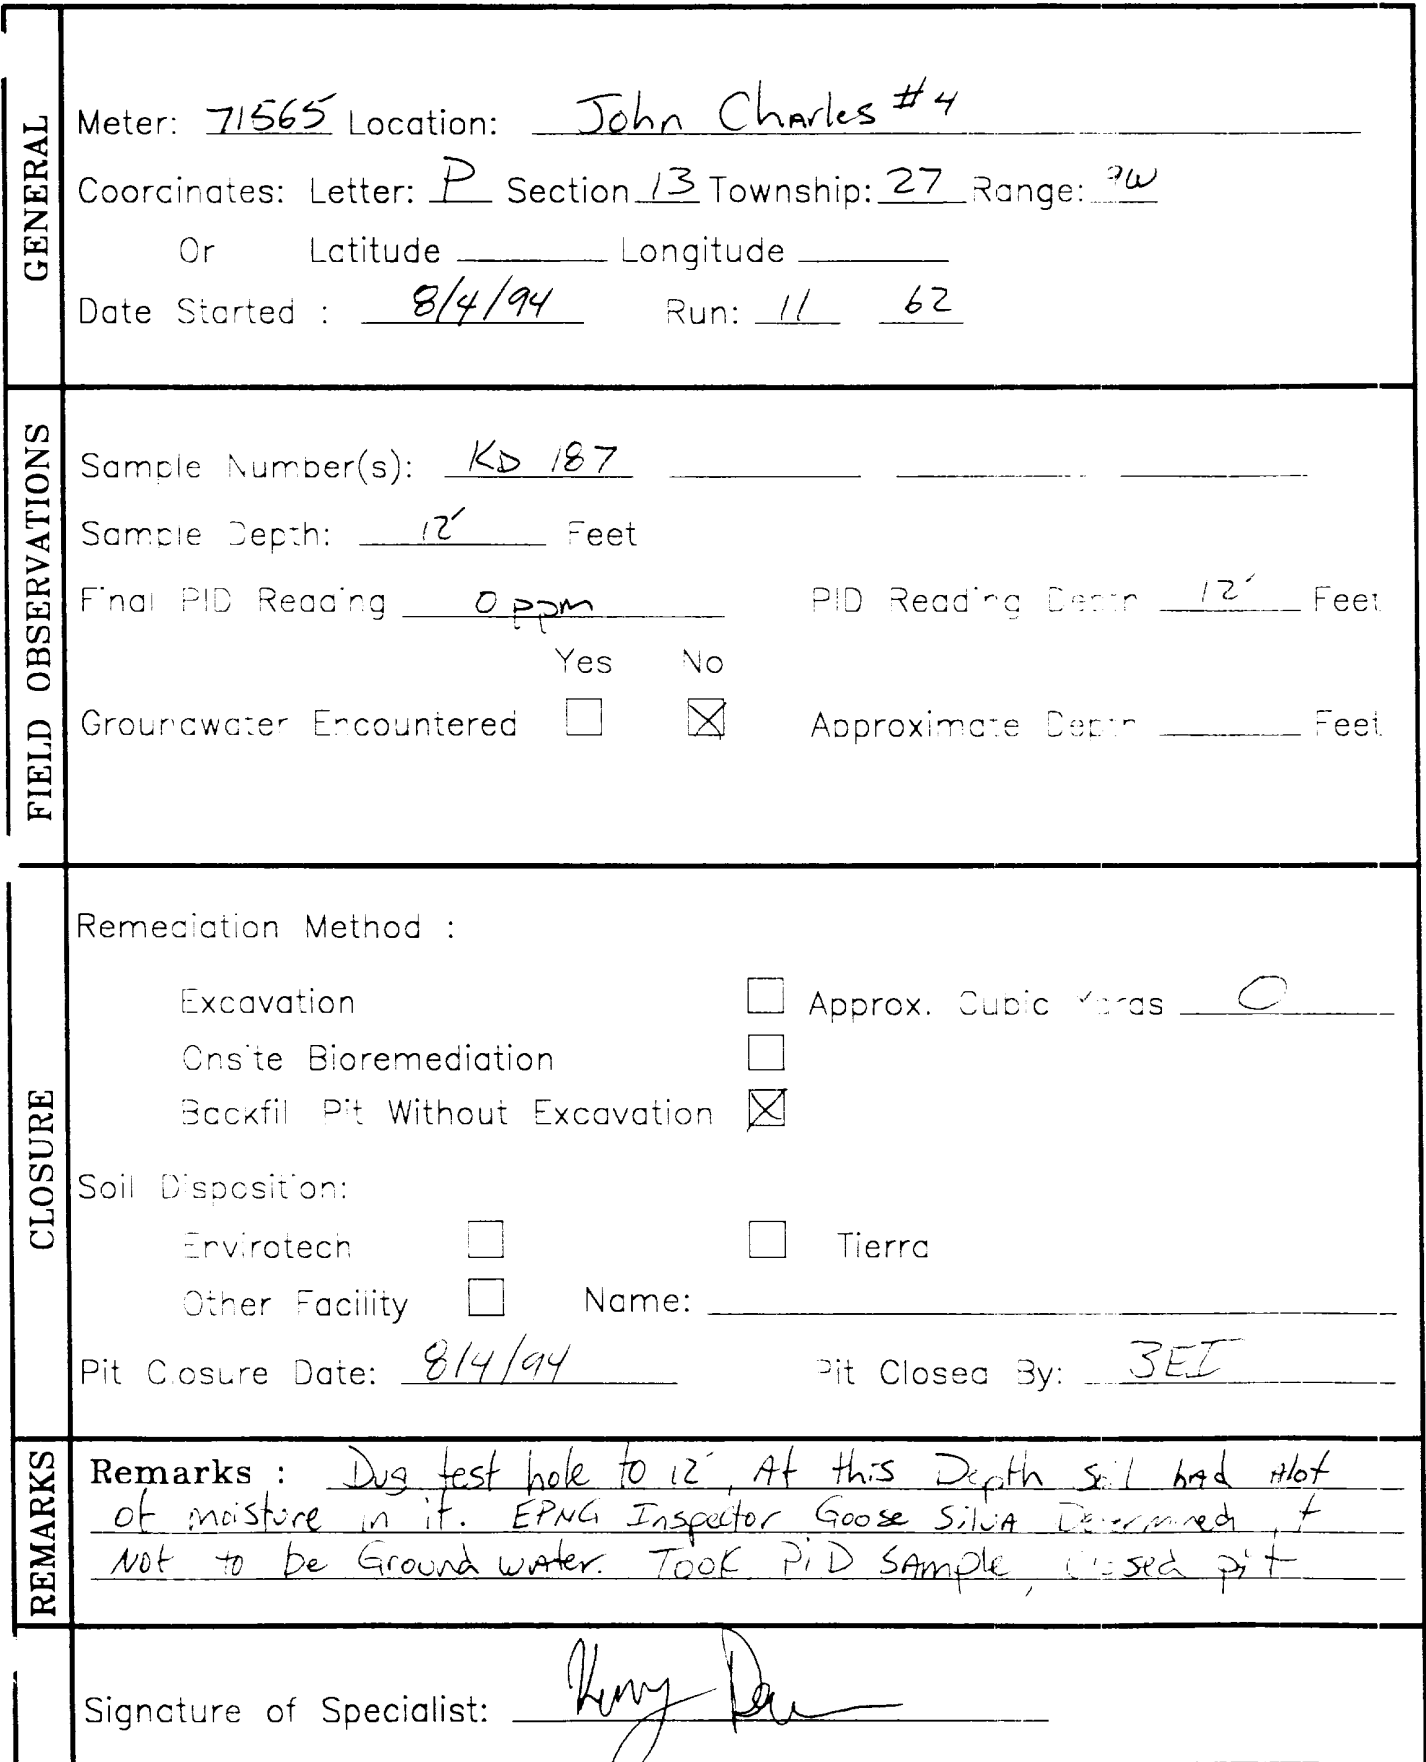 GENERAL
Meter: 71565 Location: John Charles #4
Coordinates: Letter: P Section 13 Township: 27 Range: 9W
Or Latitude Longitude
Date Started : 8/4/94 Run: 11 62
FIELD OBSERVATIONS
Sample Number(s): KD 187
Sample Depth: 12' Feet
Final PID Reading 0 ppm PID Reading Depth 12' Feet
Yes No
Groundwater Encountered Approximate Depth Feet
CLOSURE
Remediation Method :
Excavation Approx. Cubic Yards 0
Onsite Bioremediation
Backfill Pit Without Excavation
Soil Disposition:
Envirotech Tierra
Other Facility Name:
Pit Closure Date: 8/4/94 Pit Closed By: BEI
REMARKS
Remarks : Dug test hole to 12', At this Depth soil had Alot
of moisture in it. EPNG Inspector Goose Silva Determined it
Not to be Ground water. Took PiD Sample, Closed pit
Signature of Specialist: